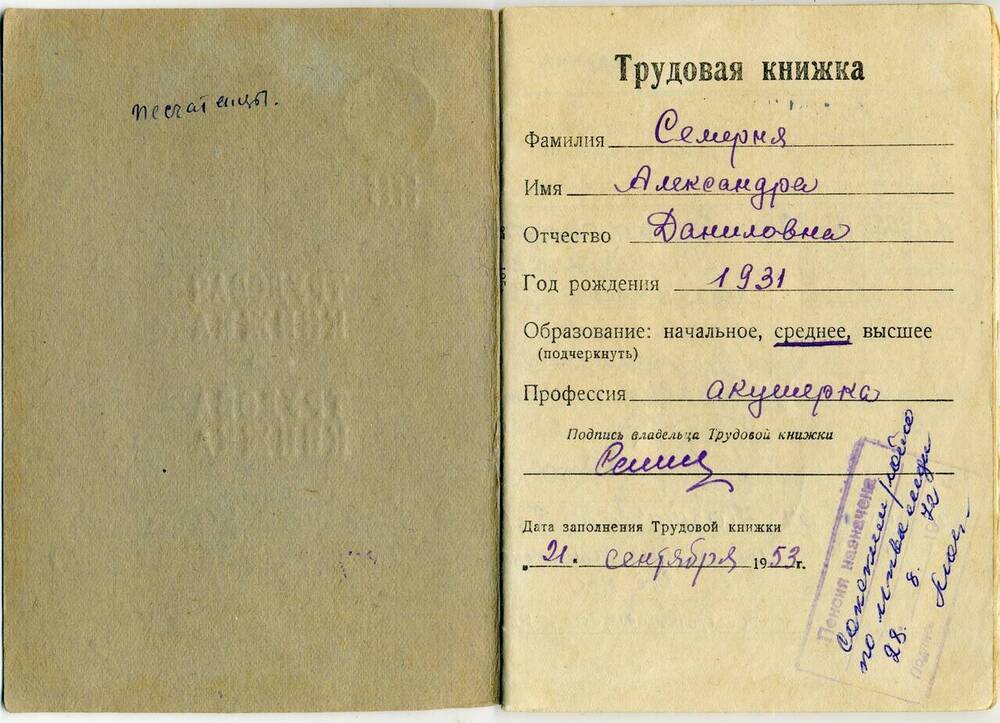 песчатенцы.
Трудовая книжка
Фамилия Семерня
Имя Александра
Отчество Даниловна
Год рождения 1931
Образование: начальное, среднее, высшее
(подчеркнуть)
Профессия акушерка
Подпись владельца Трудовой книжки
Дата заполнения Трудовой книжки
„21“ сентября 1953г.
Пенсия назначена
по инвалид
28. 8. 72
подпись